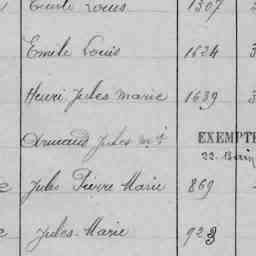 Louis 1307
Emile Louis 1624 3
Henri Jules Marie 1639 3
Armand Jules Mie EXEMPTÉ
22. Bain
e Jules Pierre Marie 869
e Jules Marie 923